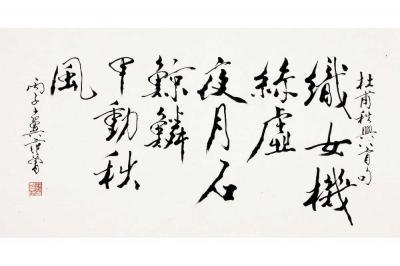 杜甫秋興八首句
織女機
絲虛
夜月石
鯨鱗
甲動秋
風
丙子十翼范曾